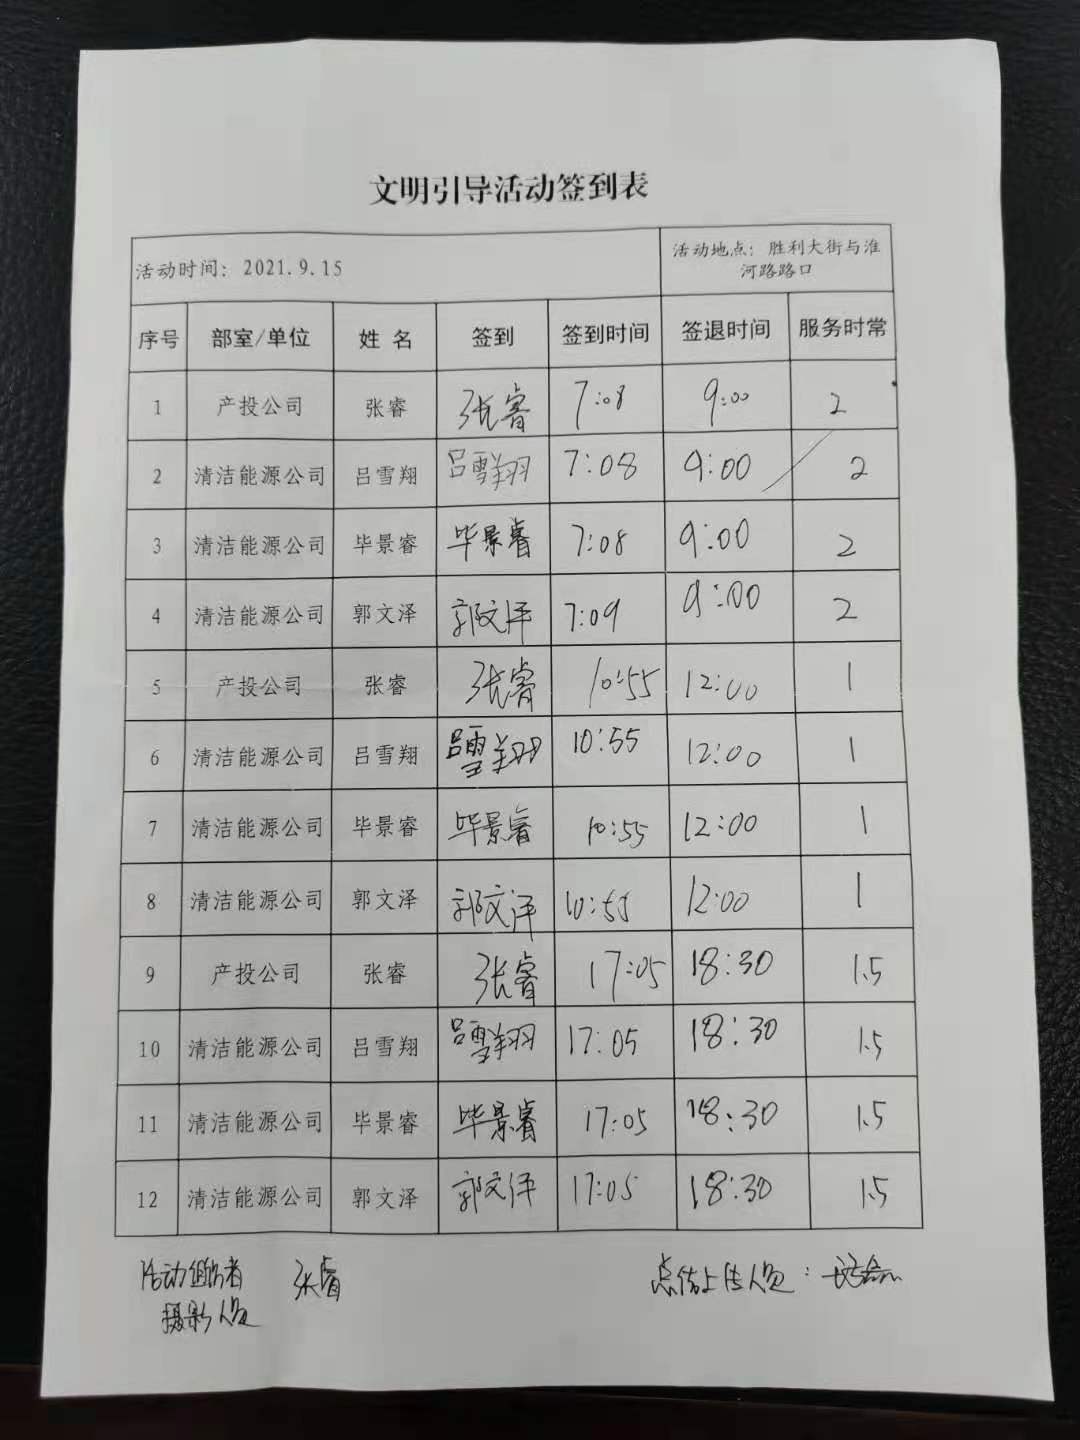 文明引导活动签到表
活动时间：2021.9.15
活动地点：胜利大街与淮
河路路口
序号 部室/单位 姓 名 签到 签到时间 签退时间 服务时常
1 产投公司 张睿 张睿 7:08 9:00 2
2 清洁能源公司 吕雪翔 吕雪翔 7:08 9:00 2
3 清洁能源公司 毕景睿 毕景睿 7:08 9:00 2
4 清洁能源公司 郭文泽 郭文泽 7:09 9:00 2
5 产投公司 张睿 张睿 10:55 12:00 1
6 清洁能源公司 吕雪翔 吕雪翔 10:55 12:00 1
7 清洁能源公司 毕景睿 毕景睿 10:55 12:00 1
8 清洁能源公司 郭文泽 郭文泽 10:55 12:00 1
9 产投公司 张睿 张睿 17:05 18:30 1.5
10 清洁能源公司 吕雪翔 吕雪翔 17:05 18:30 1.5
11 清洁能源公司 毕景睿 毕景睿 17:05 18:30 1.5
12 清洁能源公司 郭文泽 郭文泽 17:05 18:30 1.5
活动组织者 张睿 上传人员：
摄影人员